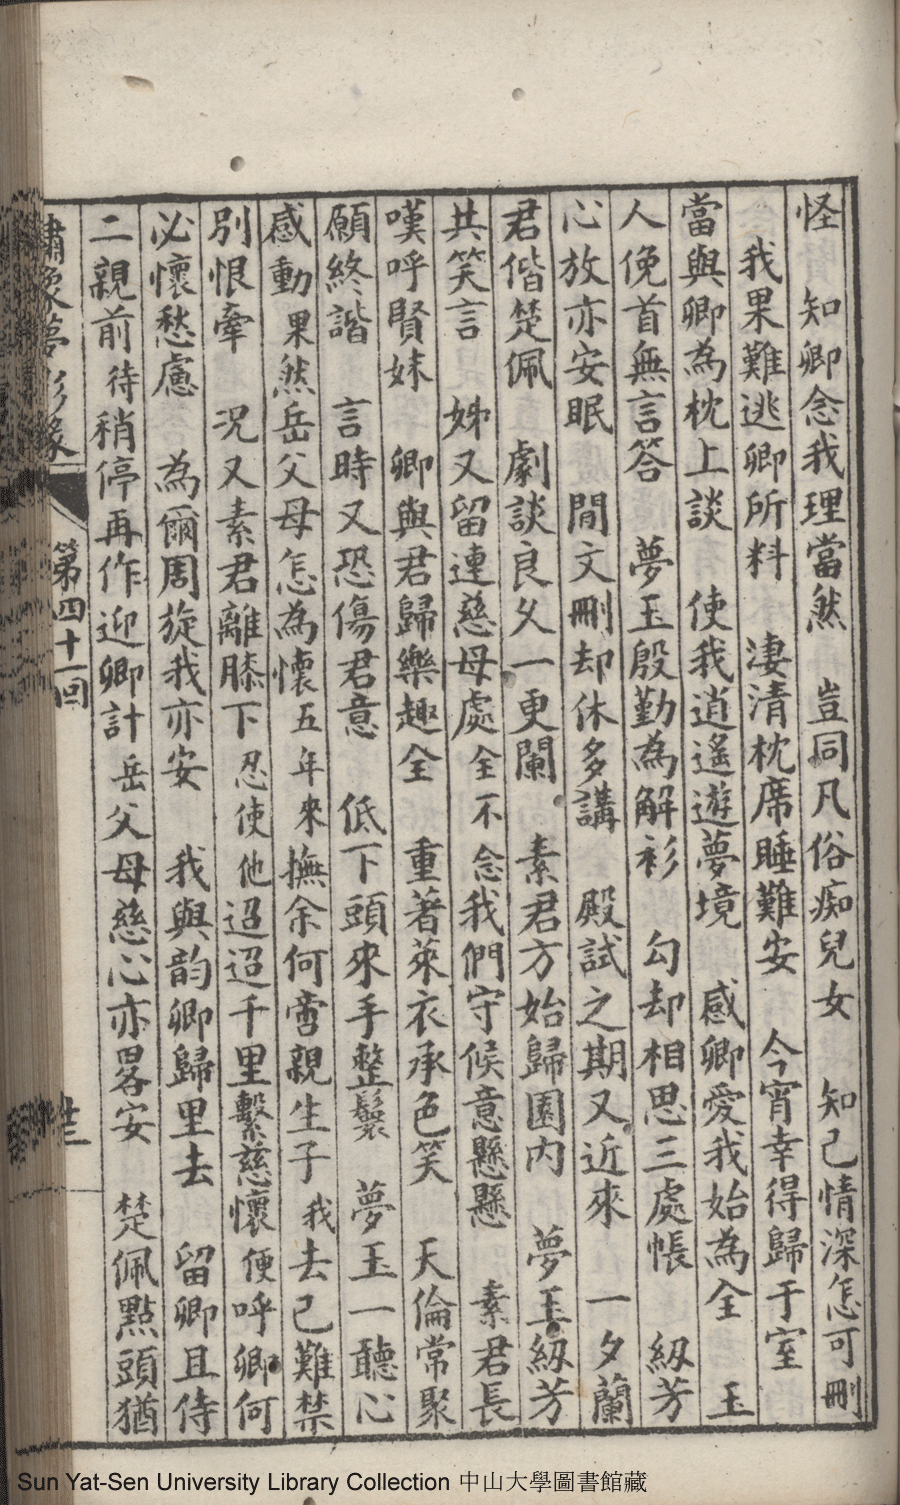 怪　知卿念我理當然　豈同凡俗痴兒女　知己情深怎可刪
我果難逃卿所料　淒清枕席睡難安　今宵幸得歸于室
當與卿為枕上談　使我逍遙遊夢境　感卿愛我始為全　玉
人俛首無言答　夢玉殷勤為解衫　勾却相思三處帳　紉芳
心放亦安眠　閒文刪却休多講　殿試之期又近來　一夕蘭
君偕楚佩　劇談良久一更闌　素君方始歸園内　夢玉紉芳
共笑言　姊又留連慈母處　全不念我們守候意懸懸　素君長
嘆呼賢妹　卿與君歸樂趣全　重著萊衣承色笑　天倫常聚
願終諧　言時又恐傷君意　低下頭來手整鬟　夢玉一聽心
感動　果然岳父母怎為懷　五年來撫余何啻親生子　我去已難禁
別恨牽　況又素君離膝下　忍使他迢迢千里繫慈懷　便呼卿何
必懷愁慮　為爾周旋我亦安　我與韵卿歸里去　留卿且侍
二親前　待稍停再作迎卿計　岳父母慈心亦畧安　楚佩點頭猶
繡像夢影緣　第四十一回　廿三
Sun Yat-Sen University Library Collection 中山大學圖書館藏